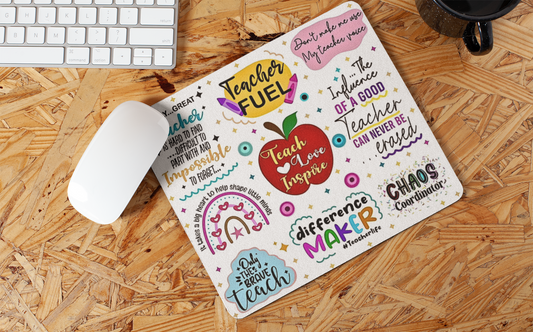 Don't make me use
My teacher voice
Teacher
FUEL
The
Influence
OF A GOOD
Teacher
CAN NEVER BE
erased
GREAT
IS HARD TO FIND
DIFFICULT TO
PART WITH AND
Impossible
TO FORGET...
Teach
Love
Inspire
CHAOS
Coordinator
It takes a big heart to help shape little minds
difference
MAKER
#Teacherlife
Only
THE
BRAVE
teach